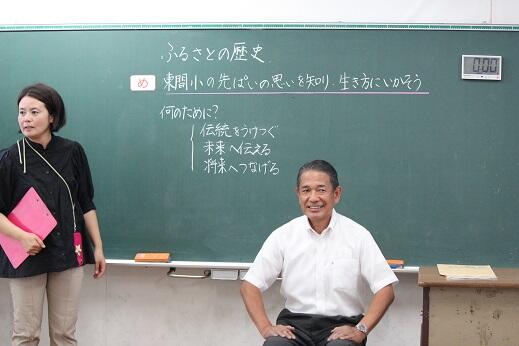 ふるさとの歴史
め 東間小の先ぱいの思いを知り、生き方にいかそう
何のために?
伝統をうけつぐ
未来へ伝える
将来へつなげる
0:00